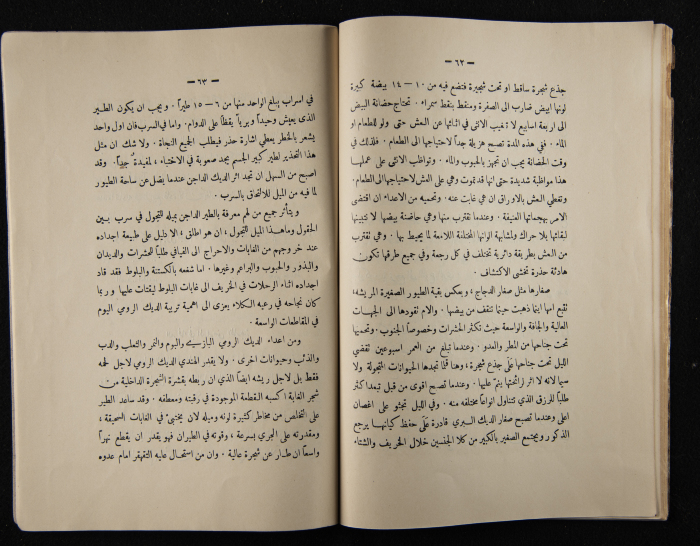 — ٦٢ —
جذع شجرة ساقط او تحت شجيرة فتضع فيه من ١٠ — ١٤ بيضة كبيرة
لونها ابيض ضارب الى الصفرة ومنقط بنقط سمراء . تحتاج حضانة البيض
الى اربعة اسابيع لا تغيب الانثى في اثنائها عن العش حتى ولو للطعام او
الماء . ففي هذه المدة تصبح هزيلة جداً لاحتياجها الى الطعام . فلذلك في
وقت الحضانة يجب ان تجهز بالحبوب والماء . وتواظب الانثى على عملها
هذا مواظبة شديدة حتى انها قد تموت وهي على العش لاحتياجها الى الطعام.
وتغطي العش بالاوراق ان هي غابت عنه . وتحميه من الاعداء ان اقتضى
الامر بهجماتها العنيفة . وعندما نقترب منها وهي حاضنة بيضها لا نتبينها
لبقائها بلا حراك ولمشابهة الوانها المختلفة اللامعة لما يحيط بها . وهي تقترب
من العش بطريقة دائرية تختلف في كل رجعة وفي جميع طرقها تكون
هادئة حذرة تخشى الاكتشاف .
صغارها مثل صغار الدجاج ، وبعكس بقية الطيور الصغيرة المريشة،
تتبع امها اينما ذهبت حينما تنقف من بيضها . والام تقودها الى الجهات
العالية والجافة والواسعة حيث تكثر الحشرات وخصوصاً الجنوب . وتحميها
تحت جناحها من المطر والعدو . وعندما تبلغ من العمر اسبوعين تقضي
الليل تحت جناحها عَلَى جذع شجرة ، وهنا قلما تجدها الحيوانات المتجولة ولا
سيما لانه لا اثر لرائحتها ينم عليها . وعندما تصبح اقوى من قبل تبعد اكثر
طلباً للرزق الذي تتناول انواعاً مختلفه منه . وفي الليل تجثو على اغصان
اعلى وعندما تصبح صغار الديك البري قادرة عَلَى حفظ كيانها يرجع
الذكور ويجتمع الصغير بالكبير من كلا الجنسين خلال الخريف والشتاء
— ٦٣ —
في اسراب يبلغ الواحد منها من ٦ — ١٥ طيراً . ويجب ان يكون الطير
الذي يعيش وحيداً وبرياً يقظاً على الدوام . واما في السرب فان اول واحد
يشعر بالخطر يعطي اشارة حذر فيطلب الجميع النجاة . ولا شك ان مثل
هذا التحذير لطير كبير الجسم يجد صعوبة في الاختباء ، لمفيدة جداً . وقد
اصبح من السهل ان تجد اثر الديك الداجن عندما يضل عن ساحة الطيور
لما فيه من الميل للالتحاق بالسرب .
ويتأثر جميع من لهم معرفة بالطير الداجن بميله للتجول في سرب بين
الحقول وما هذا الميل للتجول ، ان هو اطلق ، الا دليل على طبيعة اجداده
عند خروجهم من الغابات والاحراج الى الفيافي طلباً للحشرات والديدان
والبذور والحبوب والبراعم وغيرها . اما شغفه بالكستنة والبلوط فقد قاد
اجداده اثناء الرحلات في الخريف الى غابات البلوط ليقتات عليها وربما
كان نجاحه في رعيه الكلاء يعزى الى اهمية تربية الديك الرومي اليوم
في المقاطعات الواسعة .
ومن اعداء الديك الرومي البازي والبوم والنمر والثعلب والدب
والذئب وحيوانات اخرى . ولا يقدر الهندي الديك الرومي لاجل لحمه
فقط بل لاجل ريشه ايضاً الذي ان ربطه بقشرة الشجرة الداخلية من
شجر الغابة اكسبه القطعة الموجودة في رقبته ومعطفه . وقد ساعد الطير
على التخلص من مخاطر كثيرة لونه وميله لان يختبئ في الغابات السحيقة ،
ومقدرته على الجري بسرعة ، وقوته في الطيران فهو يقدر ان يقطع نهراً
واسعاً ان طار عن شجرة عالية . وان من استحال عليه التقهقر امام عدوه